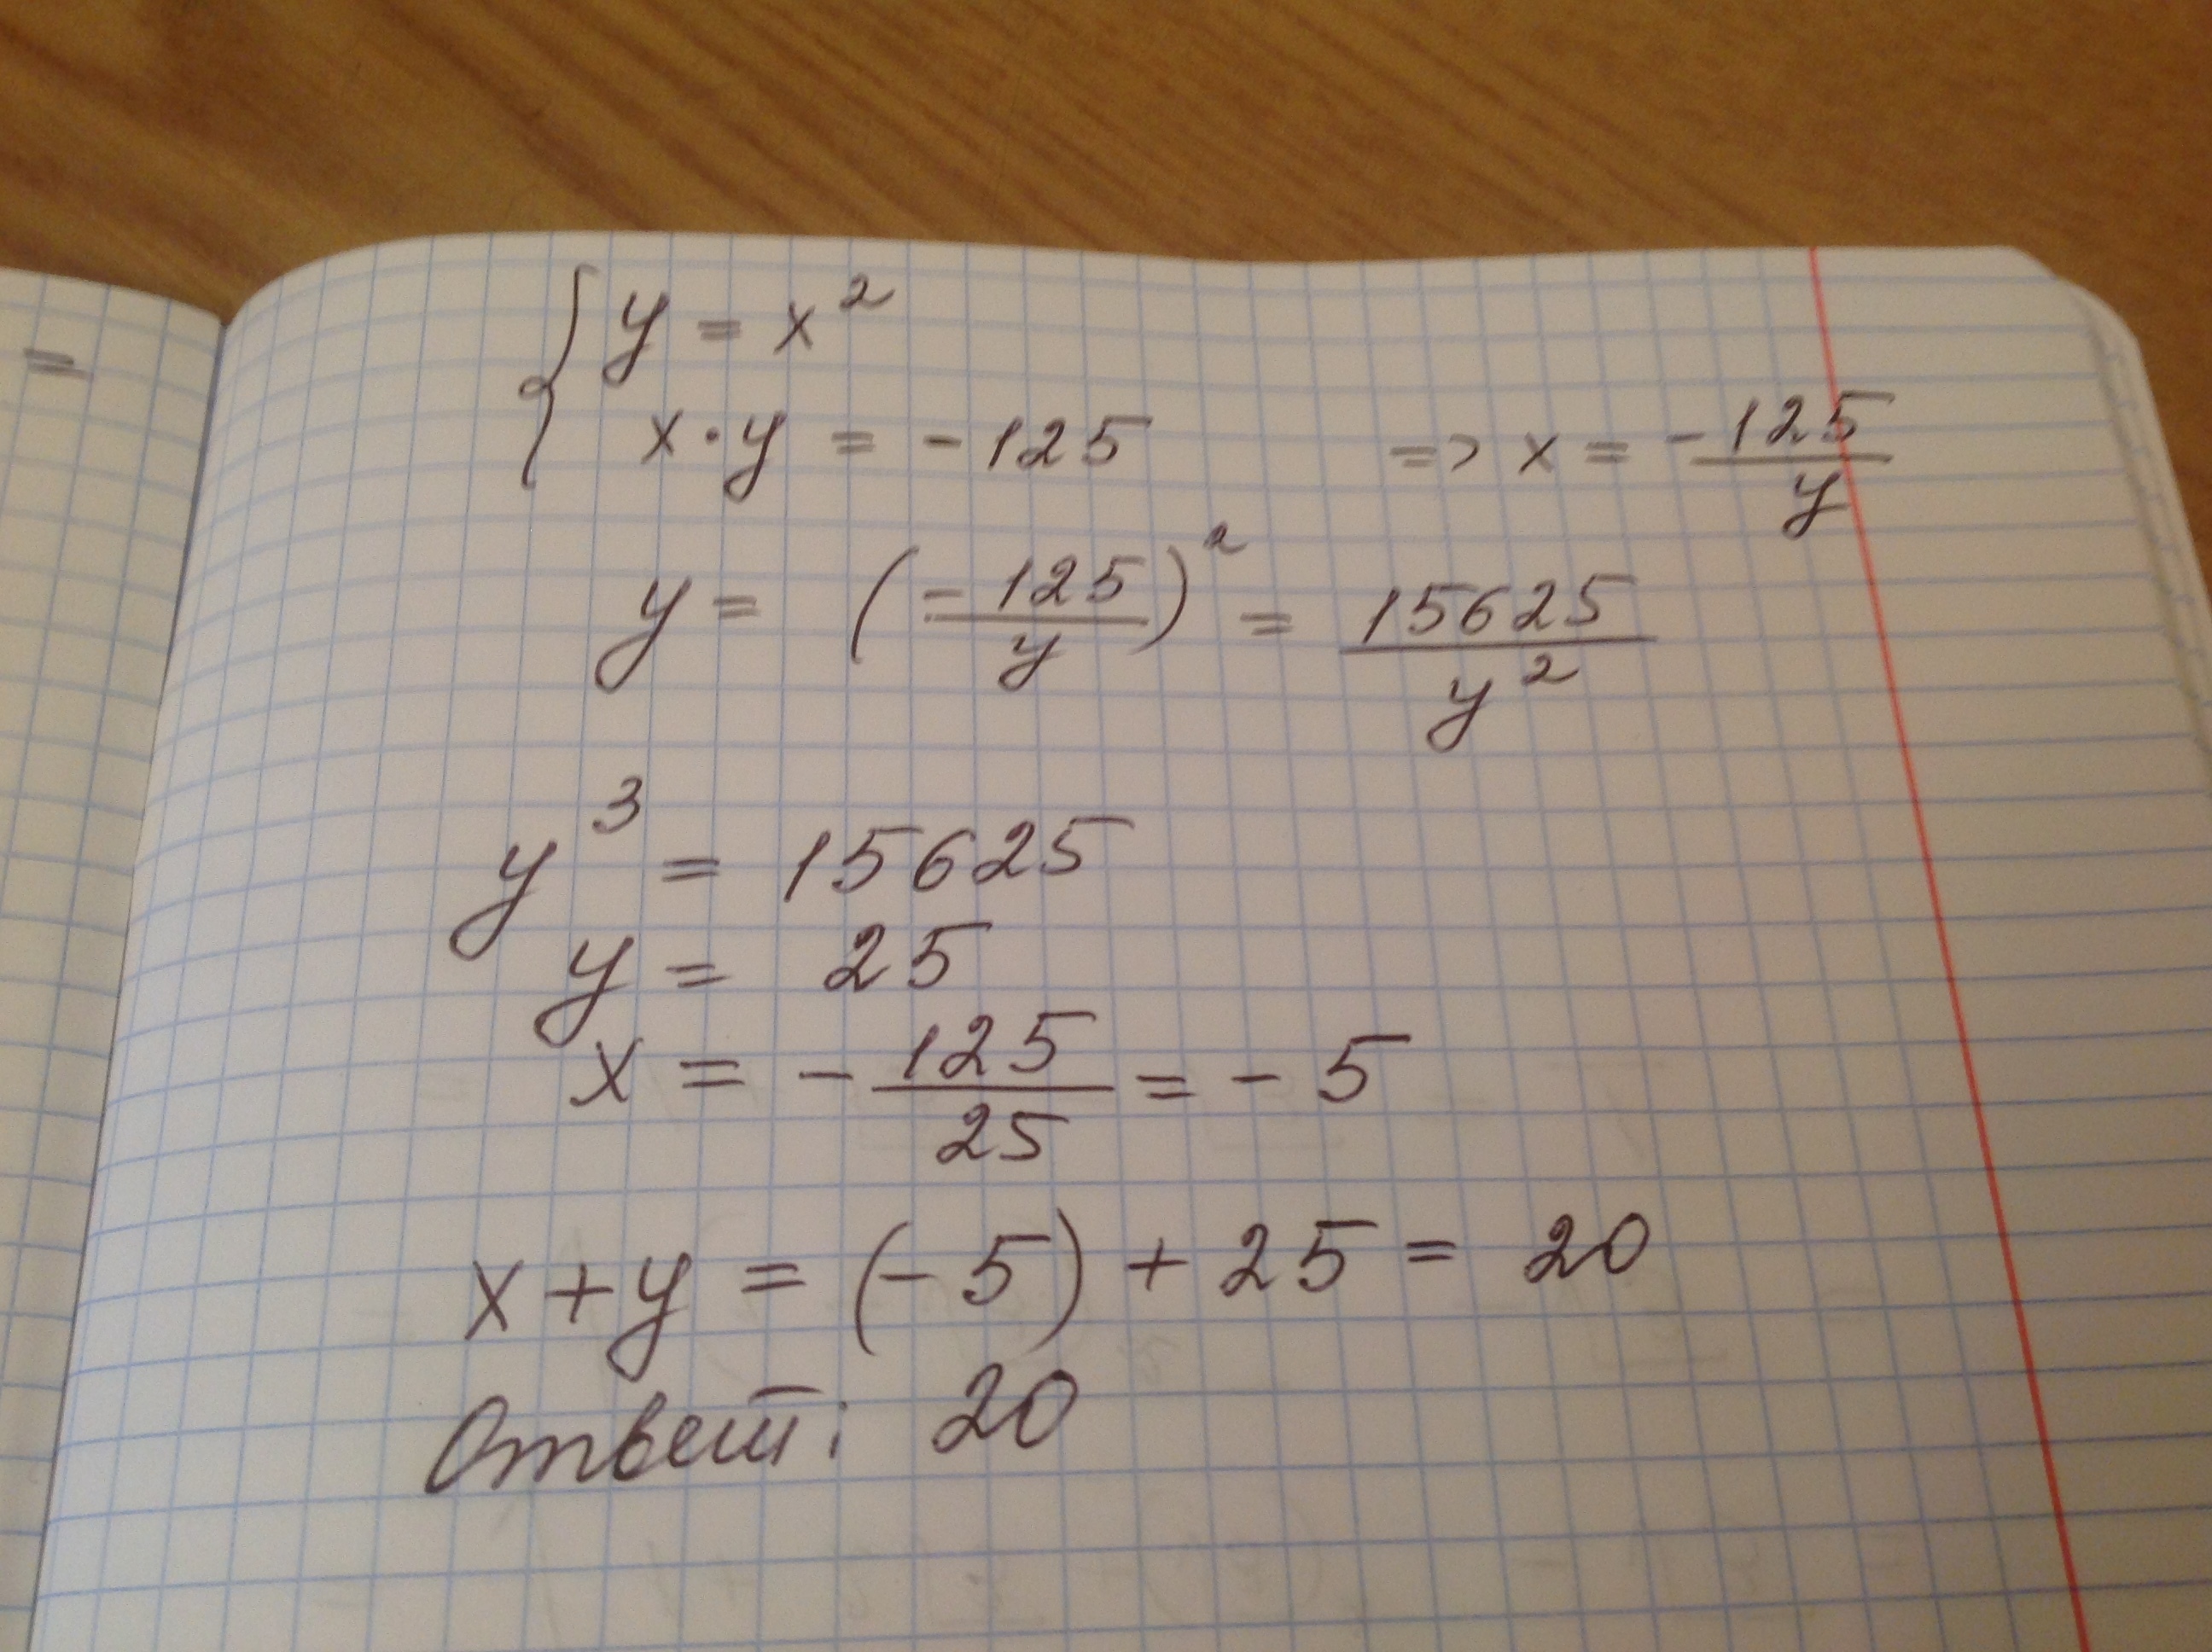 =
{ y = x²
x·y = -125 => x = -125/y
y = (-125/y)² = 15625/y²
y³ = 15625
y = 25
x = -125/25 = -5
x+y = (-5) + 25 = 20
Ответ: 20